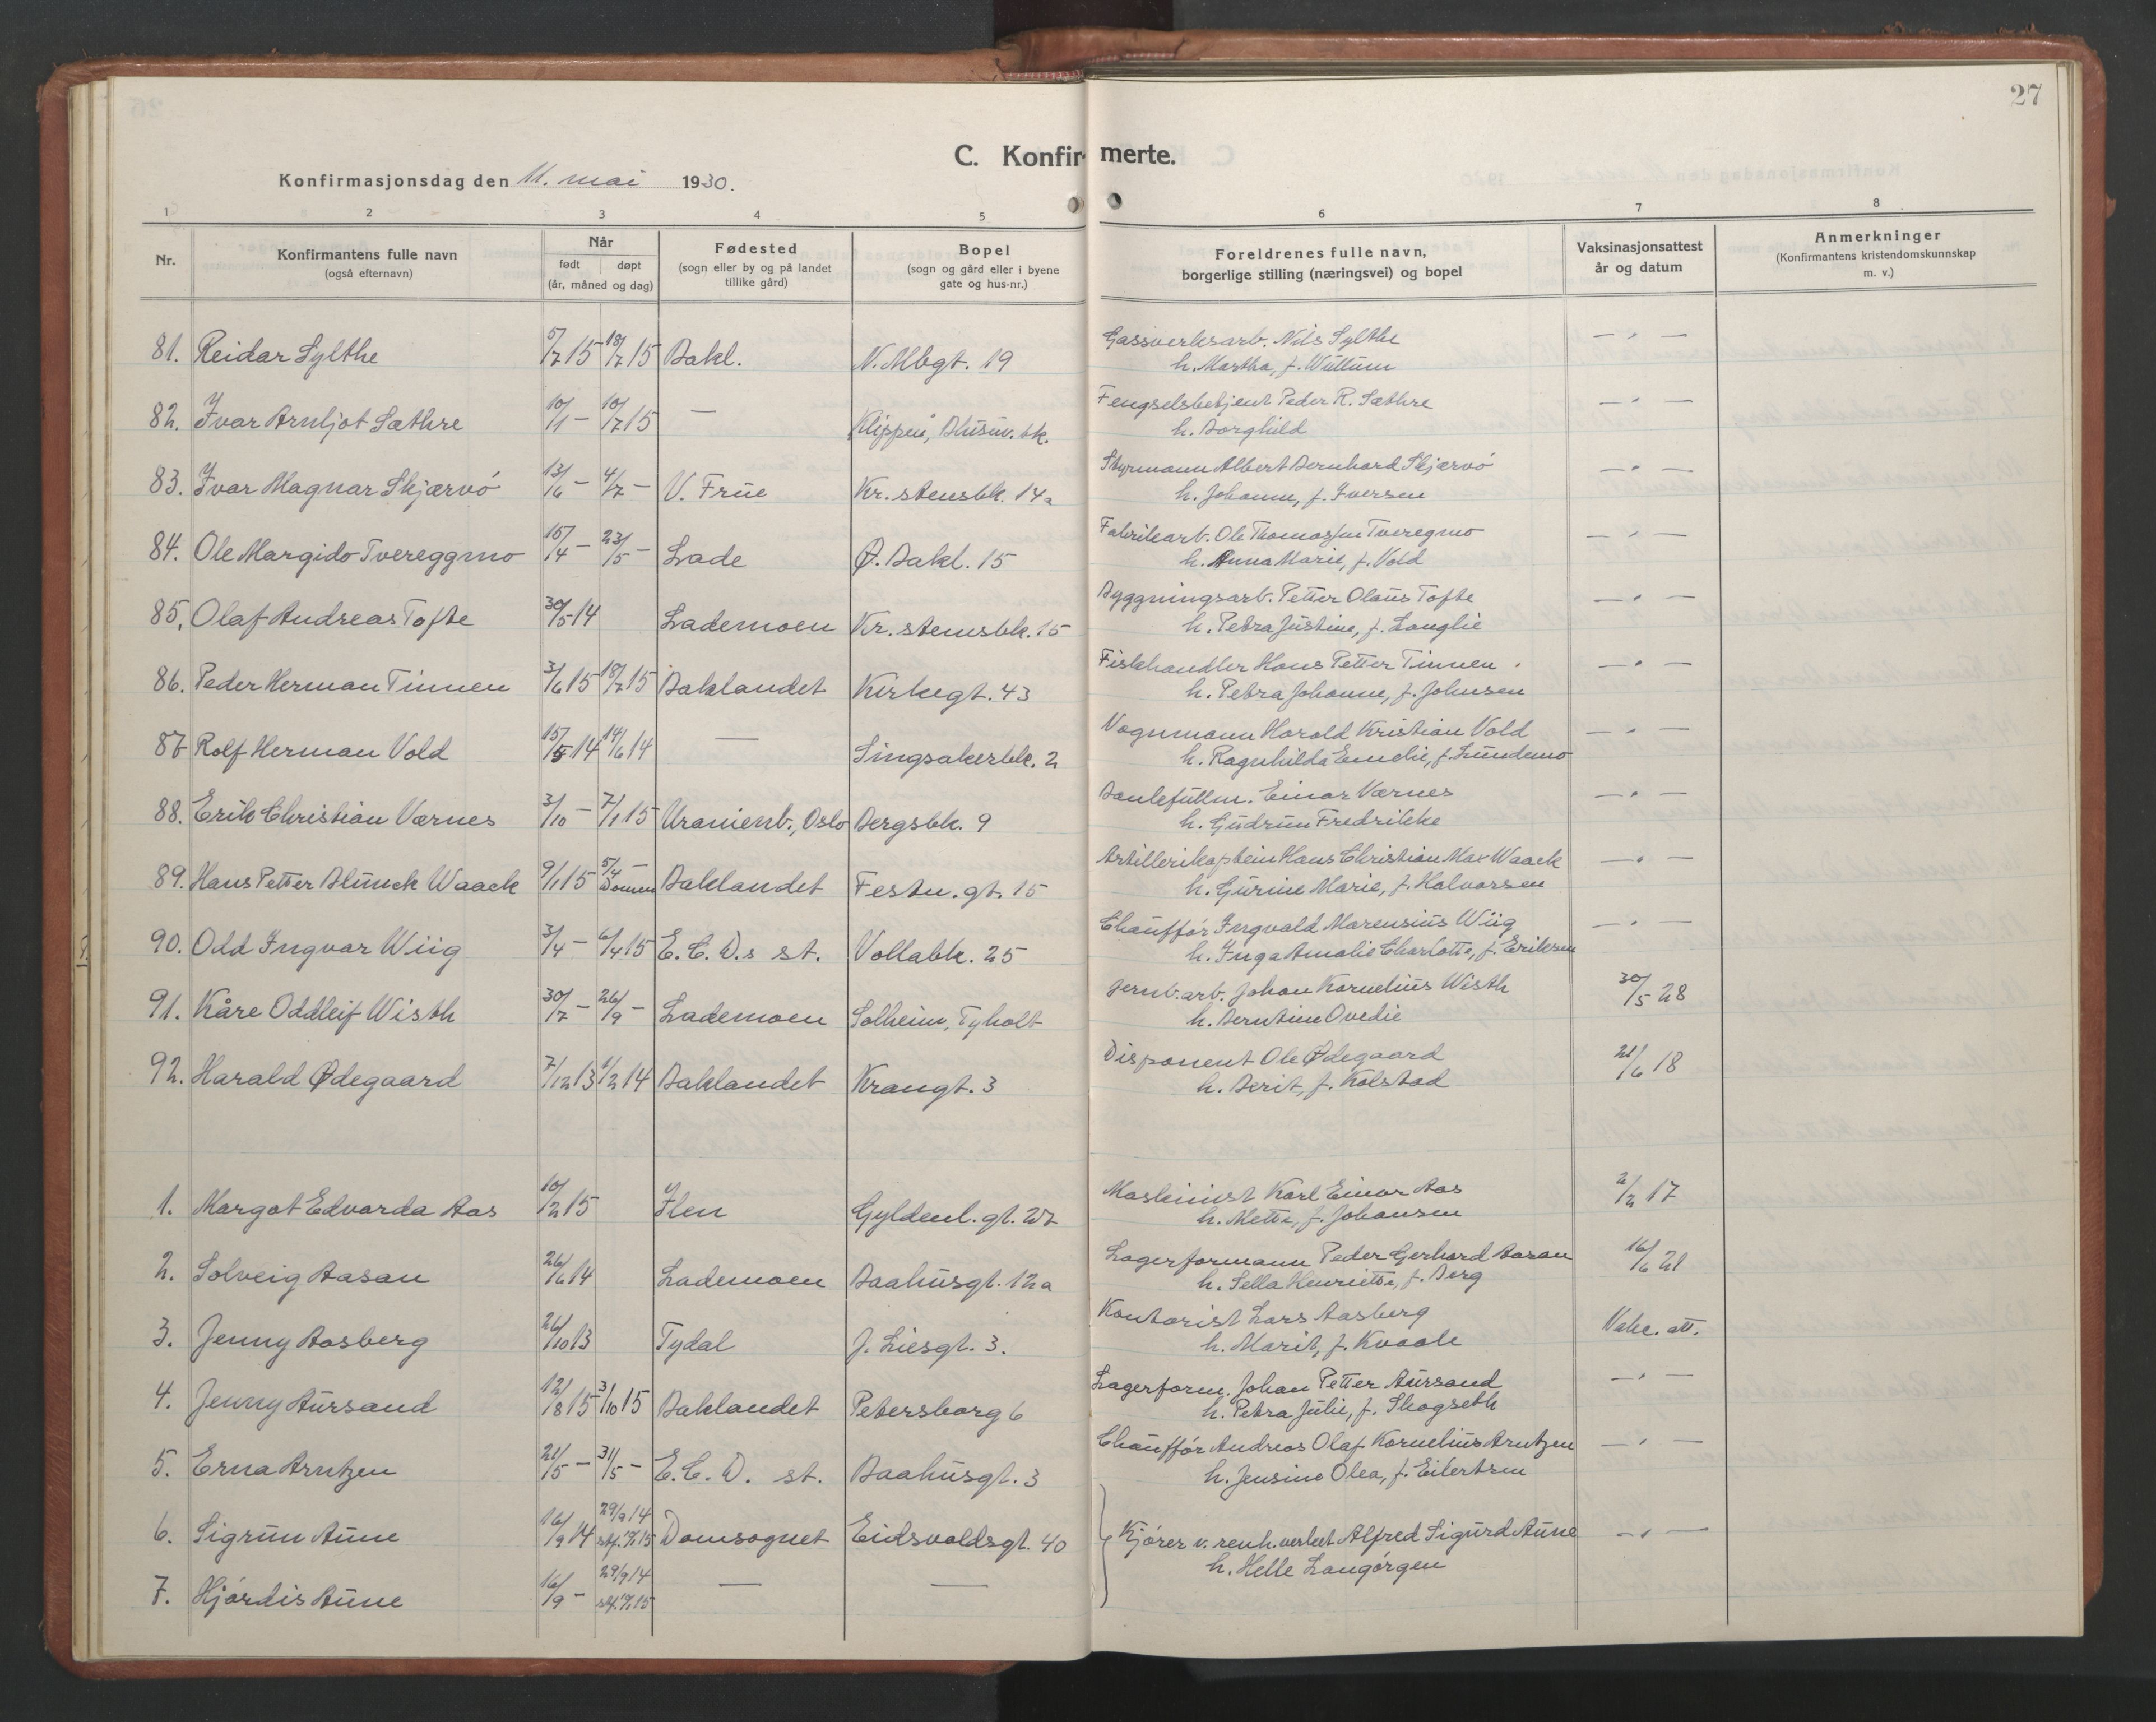 27
C. Konfirmerte.
Konfirmasjonsdag den 11. mai 1930.
1 2 3 4 5 6 7 8
Nr. Konfirmantens fulle navn (også efternavn) Når født døpt (år, måned og dag) Fødested (sogn eller by og på landet tillike gård) Bopel (sogn og gård eller i byene gate og hus-nr.) Foreldrenes fulle navn, borgerlige stilling (næringsvei) og bopel Vaksinasjonsattest år og datum Anmerkninger (Konfirmantens kristendomskunnskap m. v.)
81. Reidar Sylthe 5/7 15 18/7 15 Bakl. N. Mbgt. 19 Gassverksarb. Nils Sylthe — " —
h. Martha, f. Wullum
82. Ivar Arnljot Sæthre 10/1 — 10/7 15 — Klippen, Blusuv. bk. Fengselsbetjent Peder R. Sæthre — " —
h. Borghild
83. Ivar Magnar Skjærvö 13/6 — 4/7 — V. Frue Kr. stensbk. 14a Styrmann Albert Bernhard Skjærvö — " —
h. Johanne, f. Iversen
84. Ole Margido Tvereggmo 15/4 — 23/5 — Lade Ø. Bakl. 15 Fabrikarb. Ole Thomassen Tveregmo — " —
h. Anna Marie, f. Vold
85. Olaf Andreas Tofte 30/5 14 Lademoen Kr. stensbk. 15 Byggningsarb. Petter Olaus Tofte — " —
h. Petra Justine, f. Langlie
86. Peder Herman Tinnen 3/6 15 18/7 15 Baklandet Kirkegt. 43 Fiskehandler Hans Petter Tinnen — " —
h. Petra Johanne, f. Johnsen
87 Rolf Herman Vold 15/5 14 14/6 14 — Singsakerbk. 2 Vognmann Harald Kristian Vold — " —
h. Ragnhilda Emelie, f. Lundemo
88. Erik Christian Værnes 3/10 — 7/1 15 Uranienb., Oslo Bergsbk. 9 Bankefullm. Einar Værnes — " —
h. Gudrun Fredrikke
89. Hans Petter Blunck Waack 9/1 15 5/4 — Domen Baklandet Festn. gt. 15 Artillerikaptein Hans Christian Max Waack — " —
h. Gurine Marie, f. Halvorsen
90. Odd Ingvar Wiig 3/4 — 6/4 15 E. C. D.s st. Vollabk. 25 Chaufför Ingvald Marensius Wiig — " —
h. Inga Amalie Charlotte, f. Eriksen
91. Kåre Oddleif Wisth 30/7 — 26/9 — Lademoen Solheim, Tyholt Jernb. arb. Johan Kornelius Wisth 30/5 28
h. Berntine Ovedie
92. Harald Ødegaard 7/12 13 1/2 14 Baklandet Krangt. 3 Disponent Ole Ødegaard 21/6 18
h. Berit, f. Kolstad
1. Margot Edvarda Aas 10/2 15 Ilen Gyldenl. gt. Maskinist Karl Einar Aas 2/2 17
h. Mette, f. Johansen
2. Solveig Aasan 26/6 14 Lademoen Baahusgt. 12a Lagerformann Peder Gerhard Aasan 16/6 21
h. Sella Henriette, f. Berg
3. Jenny Aasberg 26/10 13 Tydal J. Liesgt. 3. Kontorist Lars Aasberg Vakc. att.
h. Marit, f. Kvaale
4. Jenny Aursand 12/8 15 3/10 15 Baklandet Petersborg 6 Lagerform. Johan Petter Aursand — " —
h. Petra Julie, f. Skogseth
5. Erna Arntzen 21/5 — 31/5 — E. C. D. st. Baahusgt. 3 Chaufför Andreas Olaf Kornelius Arntzen — " —
h. Jensine Olea, f. Eilertsen
6. Sigrun Aune 16/9 14 29/9 14 Domsognet Eidsvoldsgt. 40 Kjörer v. renh. verket Alfred Sigurd Aune — " —
h. Helle Langörgen
7. Hjördis Aune 16/9 — 29/9 14 — —